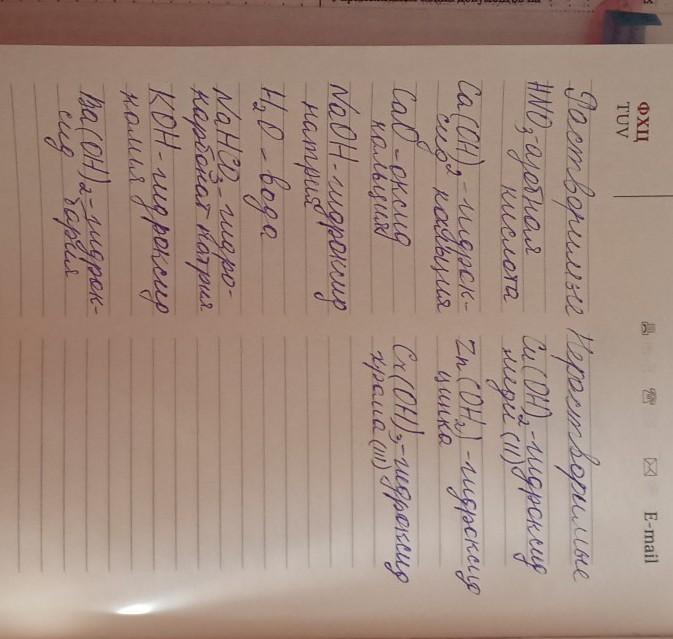 ФХЦ
TUV
E-mail
Растворимые
HNO₃-азотная
кислота
Ca(OH)₂-гидрок-
сид кальция
CaO-оксид
кальция
NaOH-гидроксид
натрия
H₂O-вода
NaHCO₃-гидро-
карбонат натрия
KOH-гидроксид
калия
Ba(OH)₂-гидрок-
сид бария
Нерастворимые
Cu(OH)₂-гидроксид
меди (II)
Zn(OH₂)-гидроксид
цинка
Cr(OH)₃-гидроксид
хрома (III)